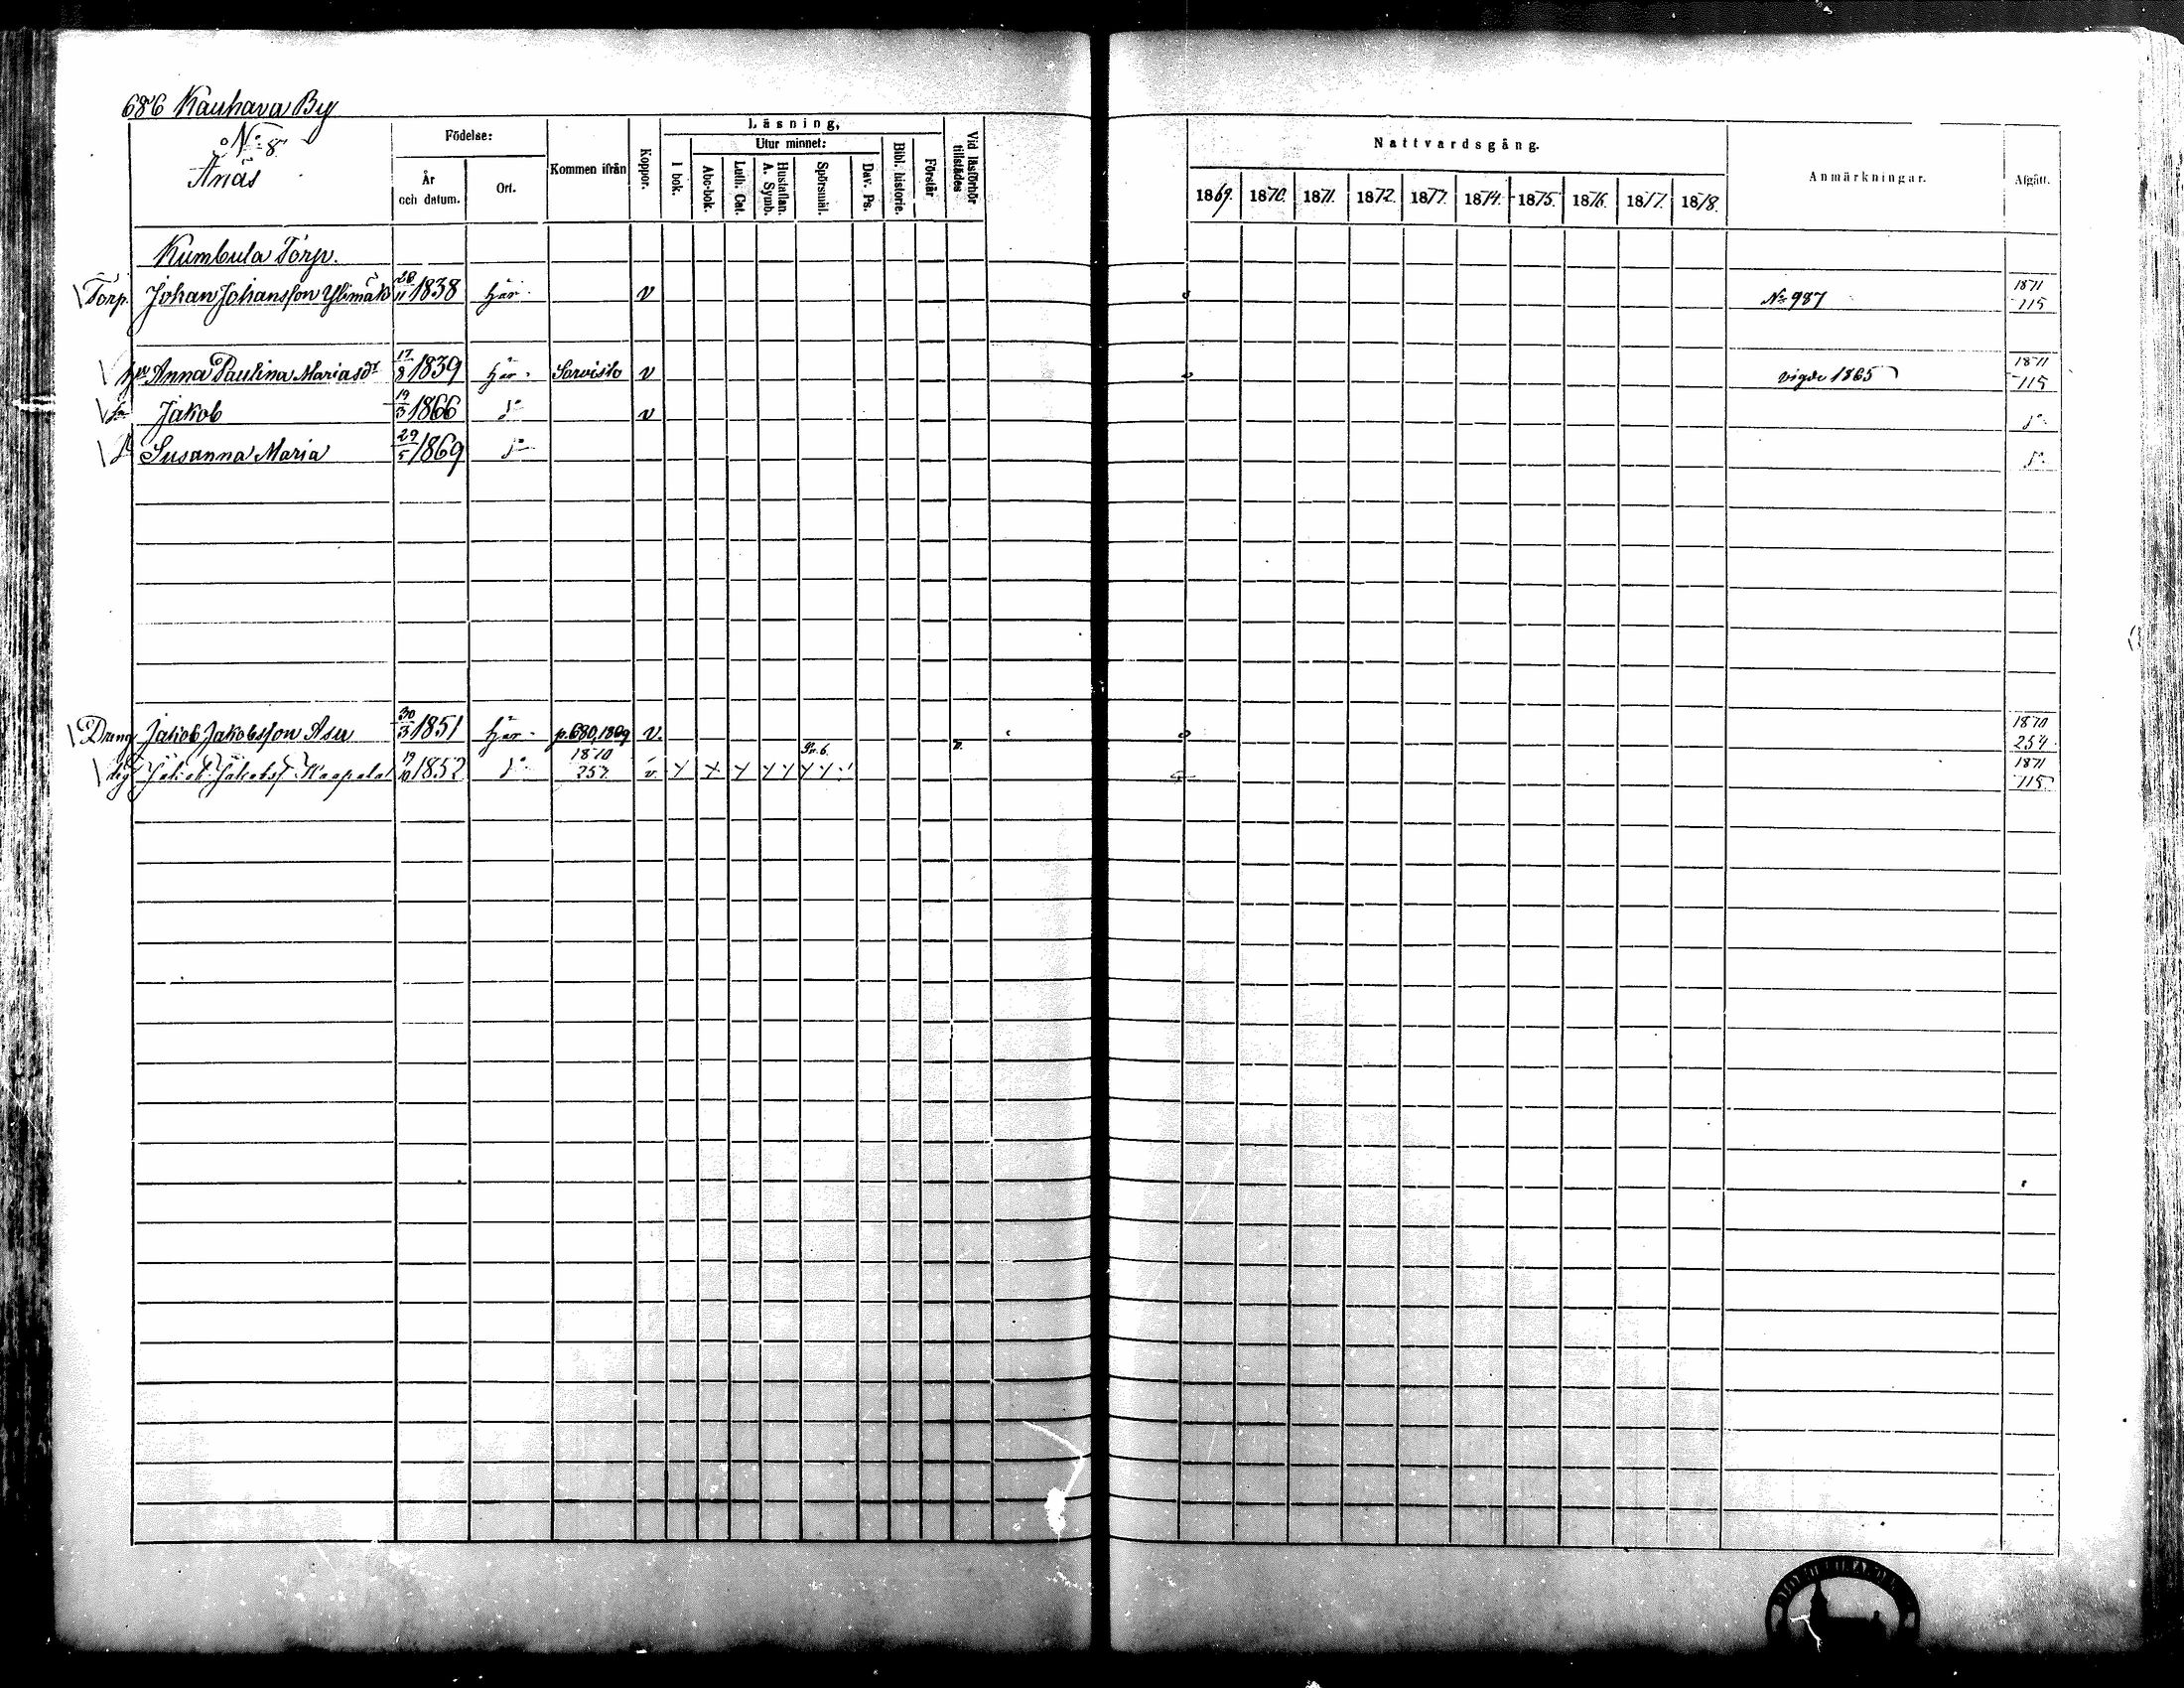 686 Kauhava By
No 8
Ånäs
Födelse:
År och datum.
Ort.
Kommen ifrån
Koppor.
Läsning,
I bok.
Utur minnet:
Abc-bok.
Luth. Cat.
Hustaflan. A. Symb.
Spörsmål.
Dav. Ps.
Bibl. historie.
Förstår
Vid läsförhör tillstädes
Nattvardsgång.
1869. 1870. 1871. 1872. 1873. 1874. 1875. 1876. 1877. 1878.
Anmärkningar.
Afgått.
Kumbula Torp.
Torp. Johan Johansson Ylimäki 28/11 1838 här v No 987 1871 115
Anna Paulina Mariasdr 17/8 1839 här Sorvisto v vigde 1865 1871 115
Jakob 19/3 1866 do v do
Susanna Maria 29/5 1869 do do
Dräng Jakob Jakobsson Asu 30/3 1851 här p. 680, 1869 v. 1870 254
Jakob Jakobss 19/10 1852 do 1870 257. v 1871 115